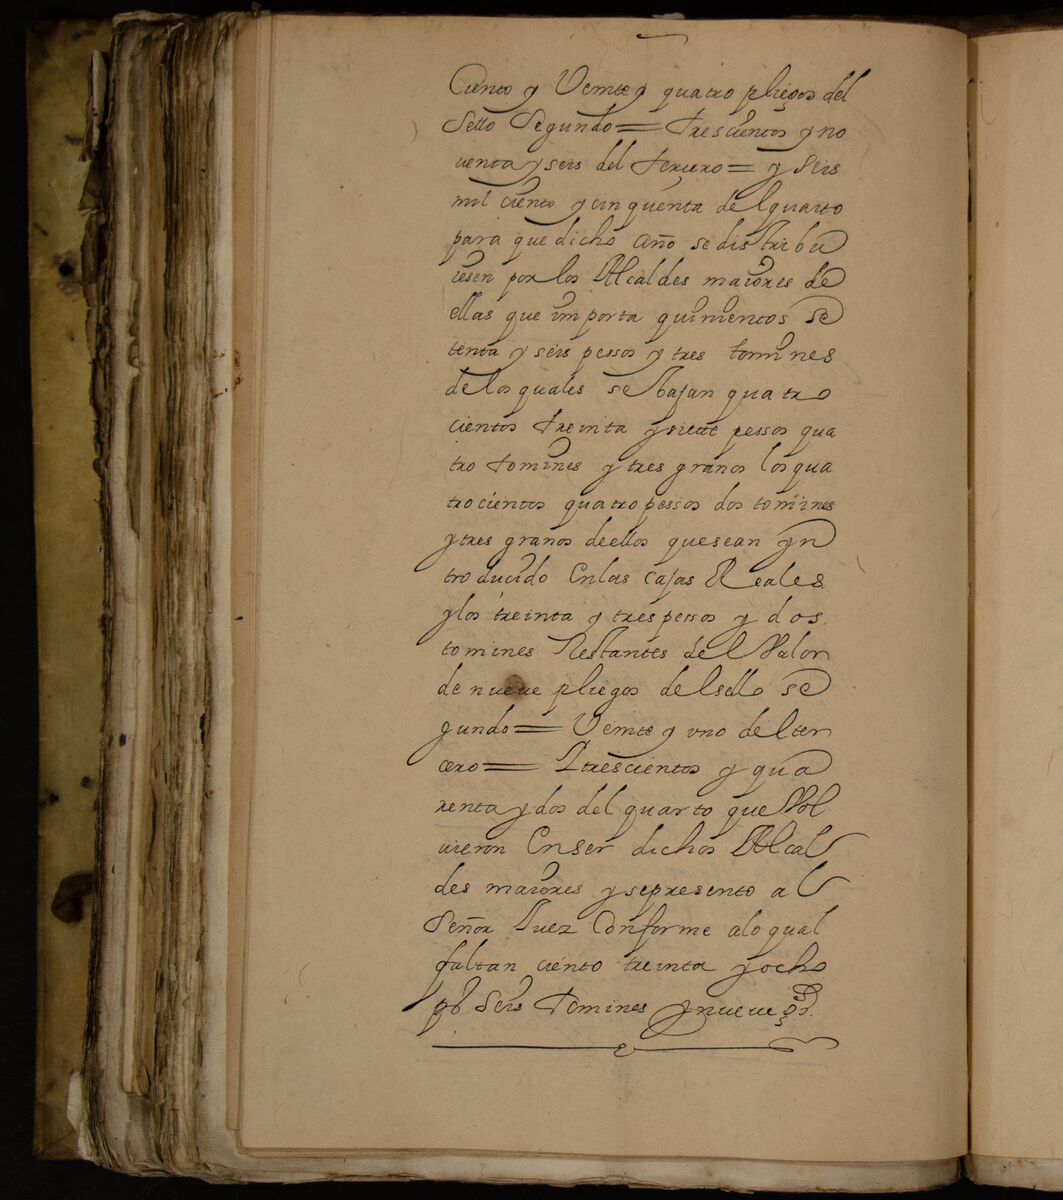 Ciento y Veinte y quatro pliegos del
Sello Segundo = trescientos y no
uenta y seis del terzero = y Seis
mil ciento y cinquenta del quarto
para que dicho año se distribu
iesen por los Alcaldes maiores de
ellas que importa quinientos se
tenta y seis pessos y tres tomines
de los quales se bajan quatro
cientos treinta y siete pessos qua
tro tomines y tres granos los qua
trocientos quatro pessos dos tomines
y tres granos de ellos que sean yn
troducido En las cajas Reales
y los treinta y tres pessos y dos
tomines Restantes del Valor
de nueue pliegos del sello se
gundo = Veinte y vno del ter
cero = Y trescientos y qua
renta y dos del quarto que Vol
uieron En ser dichos Alcal
des maiores y se presento al
Señor Juez Conforme a lo qual
faltan ciento treinta y ocho
ps Seis tomines y nueue gs.